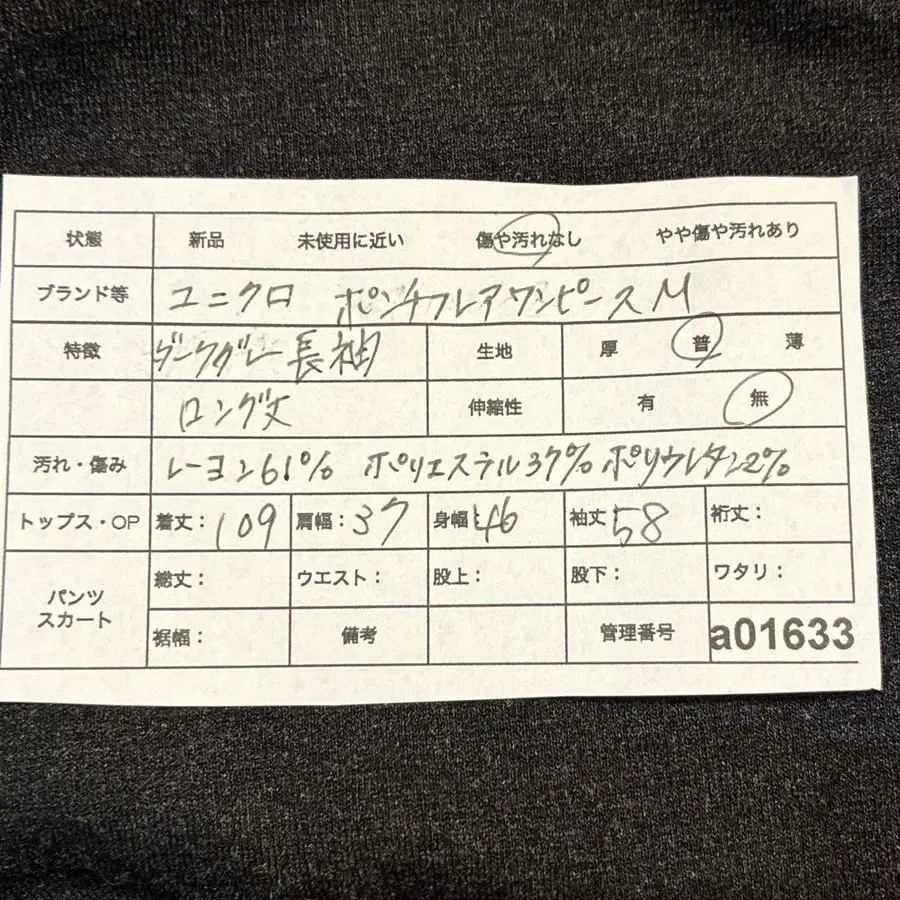 状態 新品 未使用に近い 傷や汚れなし やや傷や汚れあり
ブランド等 ユニクロ ポンチフレアワンピースM
特徴 ダークグレー長袖 生地 厚 普 薄
ロング丈 伸縮性 有 無
汚れ・傷み レーヨン61% ポリエステル37% ポリウレタン2%
トップス・OP 着丈:109 肩幅:37 身幅:46 袖丈58 裄丈:
パンツ スカート 総丈: ウエスト: 股上: 股下: ワタリ:
裾幅: 備考 管理番号 a01633